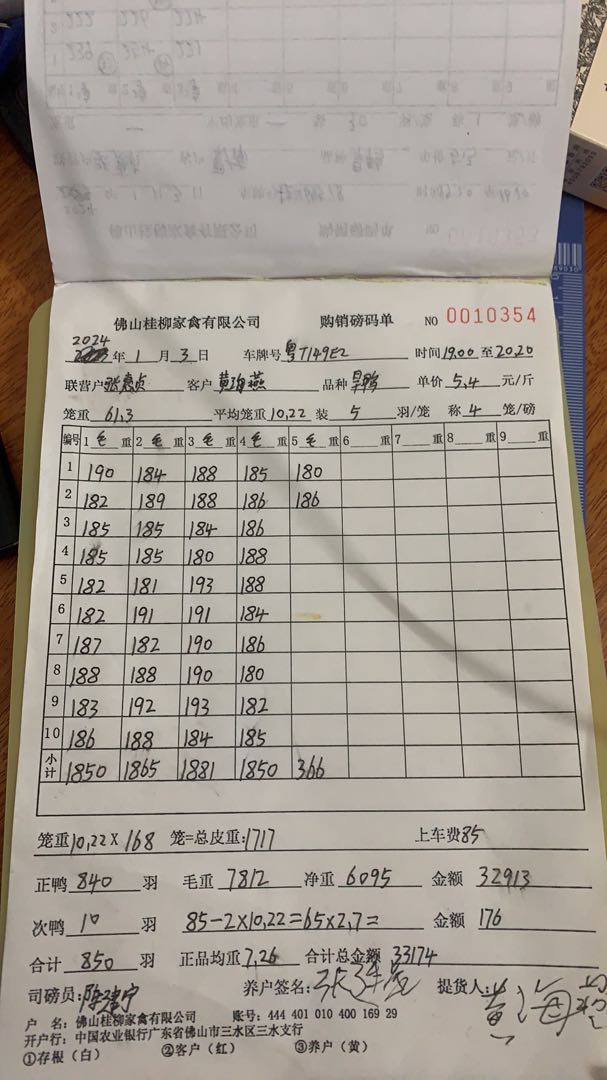 佛山桂柳家禽有限公司 购销磅码单 NO 0010354
2024 年 1 月 3 日 车牌号 粤T149E2 时间 19.00 至 20.20
联营户 张惠贞 客户 黄海燕 品种 单价 5.4 元/斤
笼重 61.3 平均笼重 10.22 装 5 羽/笼 称 4 笼/磅
编号 1 毛 重 2 毛 重 3 毛 重 4 毛 重 5 毛 重 6 重 7 重 8 重 9 重
1 190 184 188 185 180
2 182 189 188 186 186
3 185 185 184 186
4 185 185 180 188
5 182 181 193 188
6 182 191 191 184
7 187 182 190 186
8 188 188 190 180
9 183 192 193 182
10 186 188 184 185
小计 1850 1865 1881 1850 366
笼重 10.22 X 168 笼=总皮重: 1717 上车费 85
正鸭 840 羽 毛重 7812 净重 6095 金额 32913
次鸭 10 羽 85-2X10.22=65X2.7= 金额 176
合计 850 羽 正品均重 7.26 合计总金额 33174
司磅员: 陈建宁 养户签名: 提货人: 黄海燕
户 名: 佛山桂柳家禽有限公司 账号: 444 401 010 400 169 29
开户行: 中国农业银行广东省佛山市三水区三水支行
①存根（白） ②客户（红） ③养户（黄）